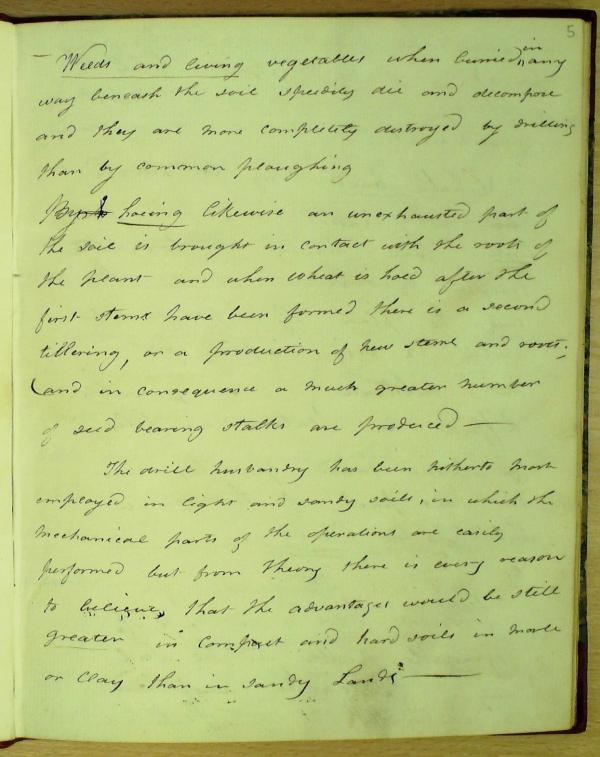 5
Weeds and living vegetables when buried in any
way beneath the soil speedily die and decompose
and they are more completely destroyed by drilling
than by common ploughing
By hoeing likewise an unexhausted part of
the soil is brought in contact with the roots of
the plant and when wheat is hoed after the
first stems have been formed there is a second
tillering, or a production of new stems and roots;
and in consequence a much greater number
of seed bearing stalks are produced —
The drill husbandry has been hitherto most
employed in light and sandy soils, in which the
mechanical parts of the operations are easily
performed but from theory there is every reason
to believe, that the advantages would be still
greater in compact and hard soils in marle
or clay than in sandy Lands —